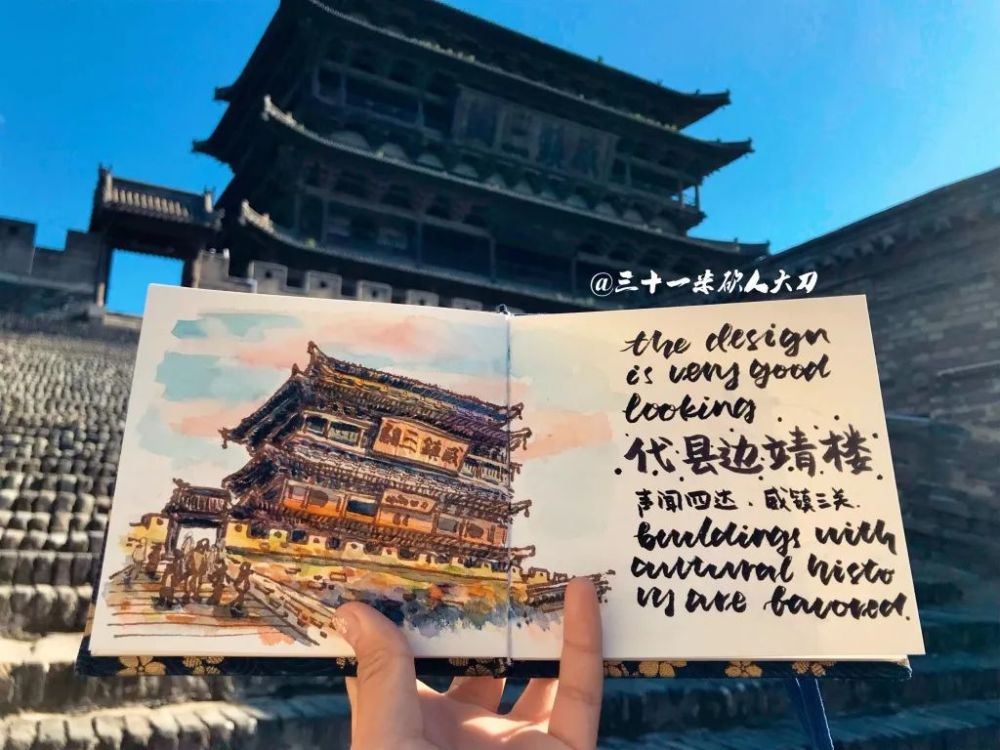 @三十一柒砍人大刀
關三鎮威
the design
is very good
looking.
代县边靖楼
声闻四达.威镇三关.
buildings with
cultural histo
ry are favored.